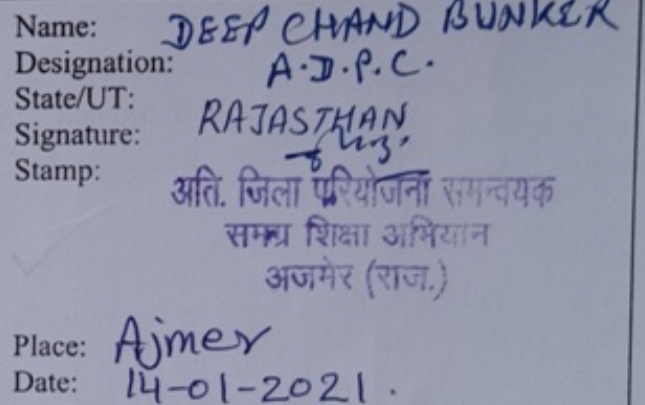 Name: DEEP CHAND BUNKER
Designation: A.D.P.C.
State/UT: RAJASTHAN
Signature:
Stamp:
अति. जिला परियोजना समन्वयक
समग्र शिक्षा अभियान
अजमेर (राज.)
Place: Ajmer
Date: 14-01-2021.